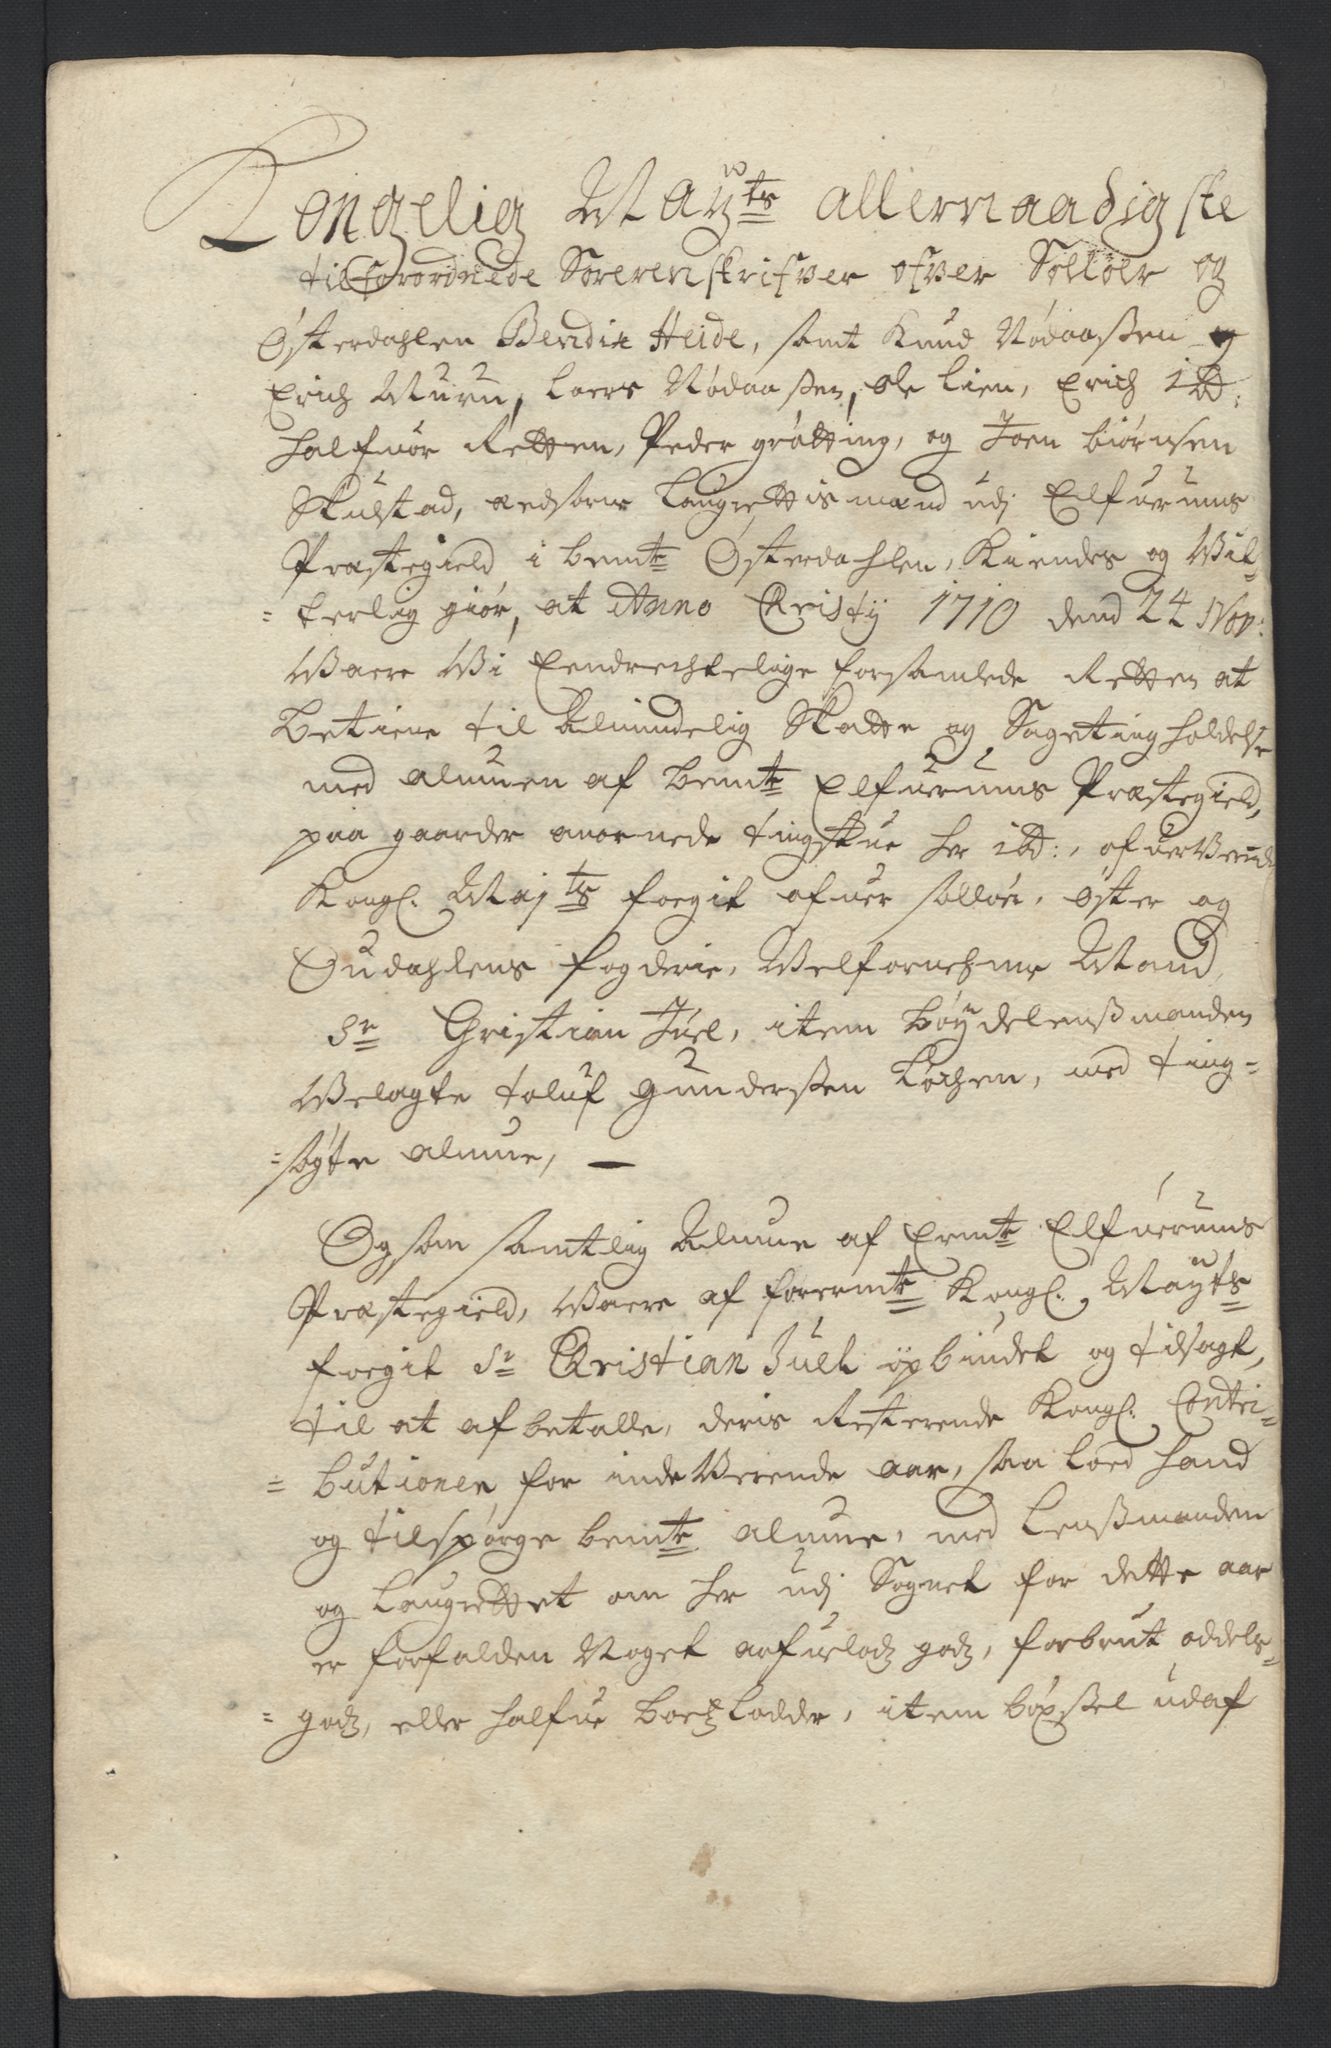 Kongelig Mayts allernaadigste
tilforordnede Sorenskrifver ofver Solløer og
Østerdahlen Bendix Heide, samt Knud Nødaaßen og
Erich Muru, Laers Nødaaßen, Ole Lien, Erich ibd:
Halfuor Retten, Peder grøtting, og Joen biørnsen
Skulstad,ædsorne Laugrettismænd udj Elfuerums
Præstegield i bemte Østerdahlen, Kiendes og Vit-
=terlig giør, at Anno Christij 1710 dend 24 Nov:
Vaere Vi Eendrechtelige forsamlede Retten at
betiene til Almindelig Skatte og Sageting holdelse
med almuen af bemte Elfuerums Præstegield,
paa gaarder anordnede tingstue her ibd:, ofuerVerende
Kongl. Majts foegit ofuer Solløer, øster og
Oudahlens fogderie, Velfornehme Mand
Sr Christian Juel, item bøydelenßmanden
Velagte toluf Gunderßen Løchen, med ting-
=søgte almue, —
Og som samtlig Almue af Ermte Elfuerums
Præstegield, Vaere af forermte Kongl. Mayts
foegit Sr Christian Juell opbiudet og tilsagt,
til at afbetalle, deris Resterende Kongl. Contri-
=butioner for indeVerende aar, saa loed hand
og tilspørge bemte almue, med Lenßmanden
og Laugrettet om her udj Sognet for dette aar
er forfalden Noget arfueløds godz, forbrut oddels-
=godz, eller halfue boetzlodder, item bøxßel udaf